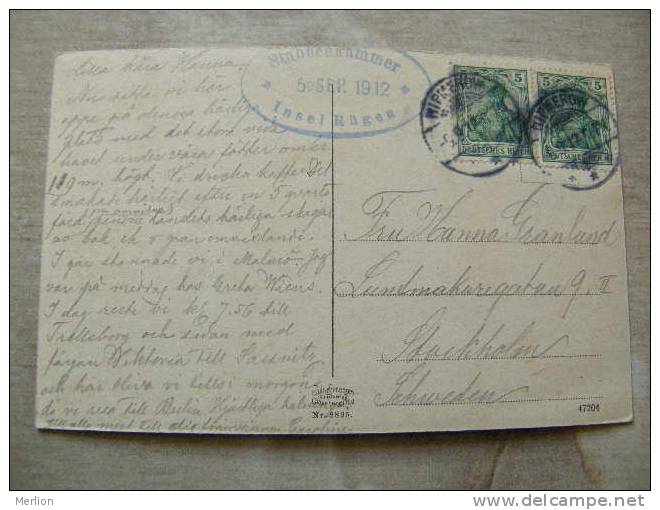 Lilla kära Hanna,
Nu sitta vi här
uppe på denna härliga
plats med det stora vida
havet under våra fötter
119 m högt. Vi dricka kaffe. Det
smakade härligt efter en 5 qvarts
färd genom landets härliga skogar
av bok
I går stannade vi i Malmö. Jag
var på middag hos Greta Wiens.
I dag reste vi kl 7.56 till
Trelleborg och sedan med
färjan Viktoria till Sassnitz
och här bliva vi tills i morgon
då vi resa till Berlin. Hjärtliga
till dig
Stubbenkammer
5. SEP. 1912
Insel Rügen
5 5
DEUTSCHES REICH DEUTSCHES REICH
Fru Hanna Granlund
Luntmakaregatan 9, II
Stockholm
Schweden
Nr. 8895.
47204
Merlion
www.delcampe.net